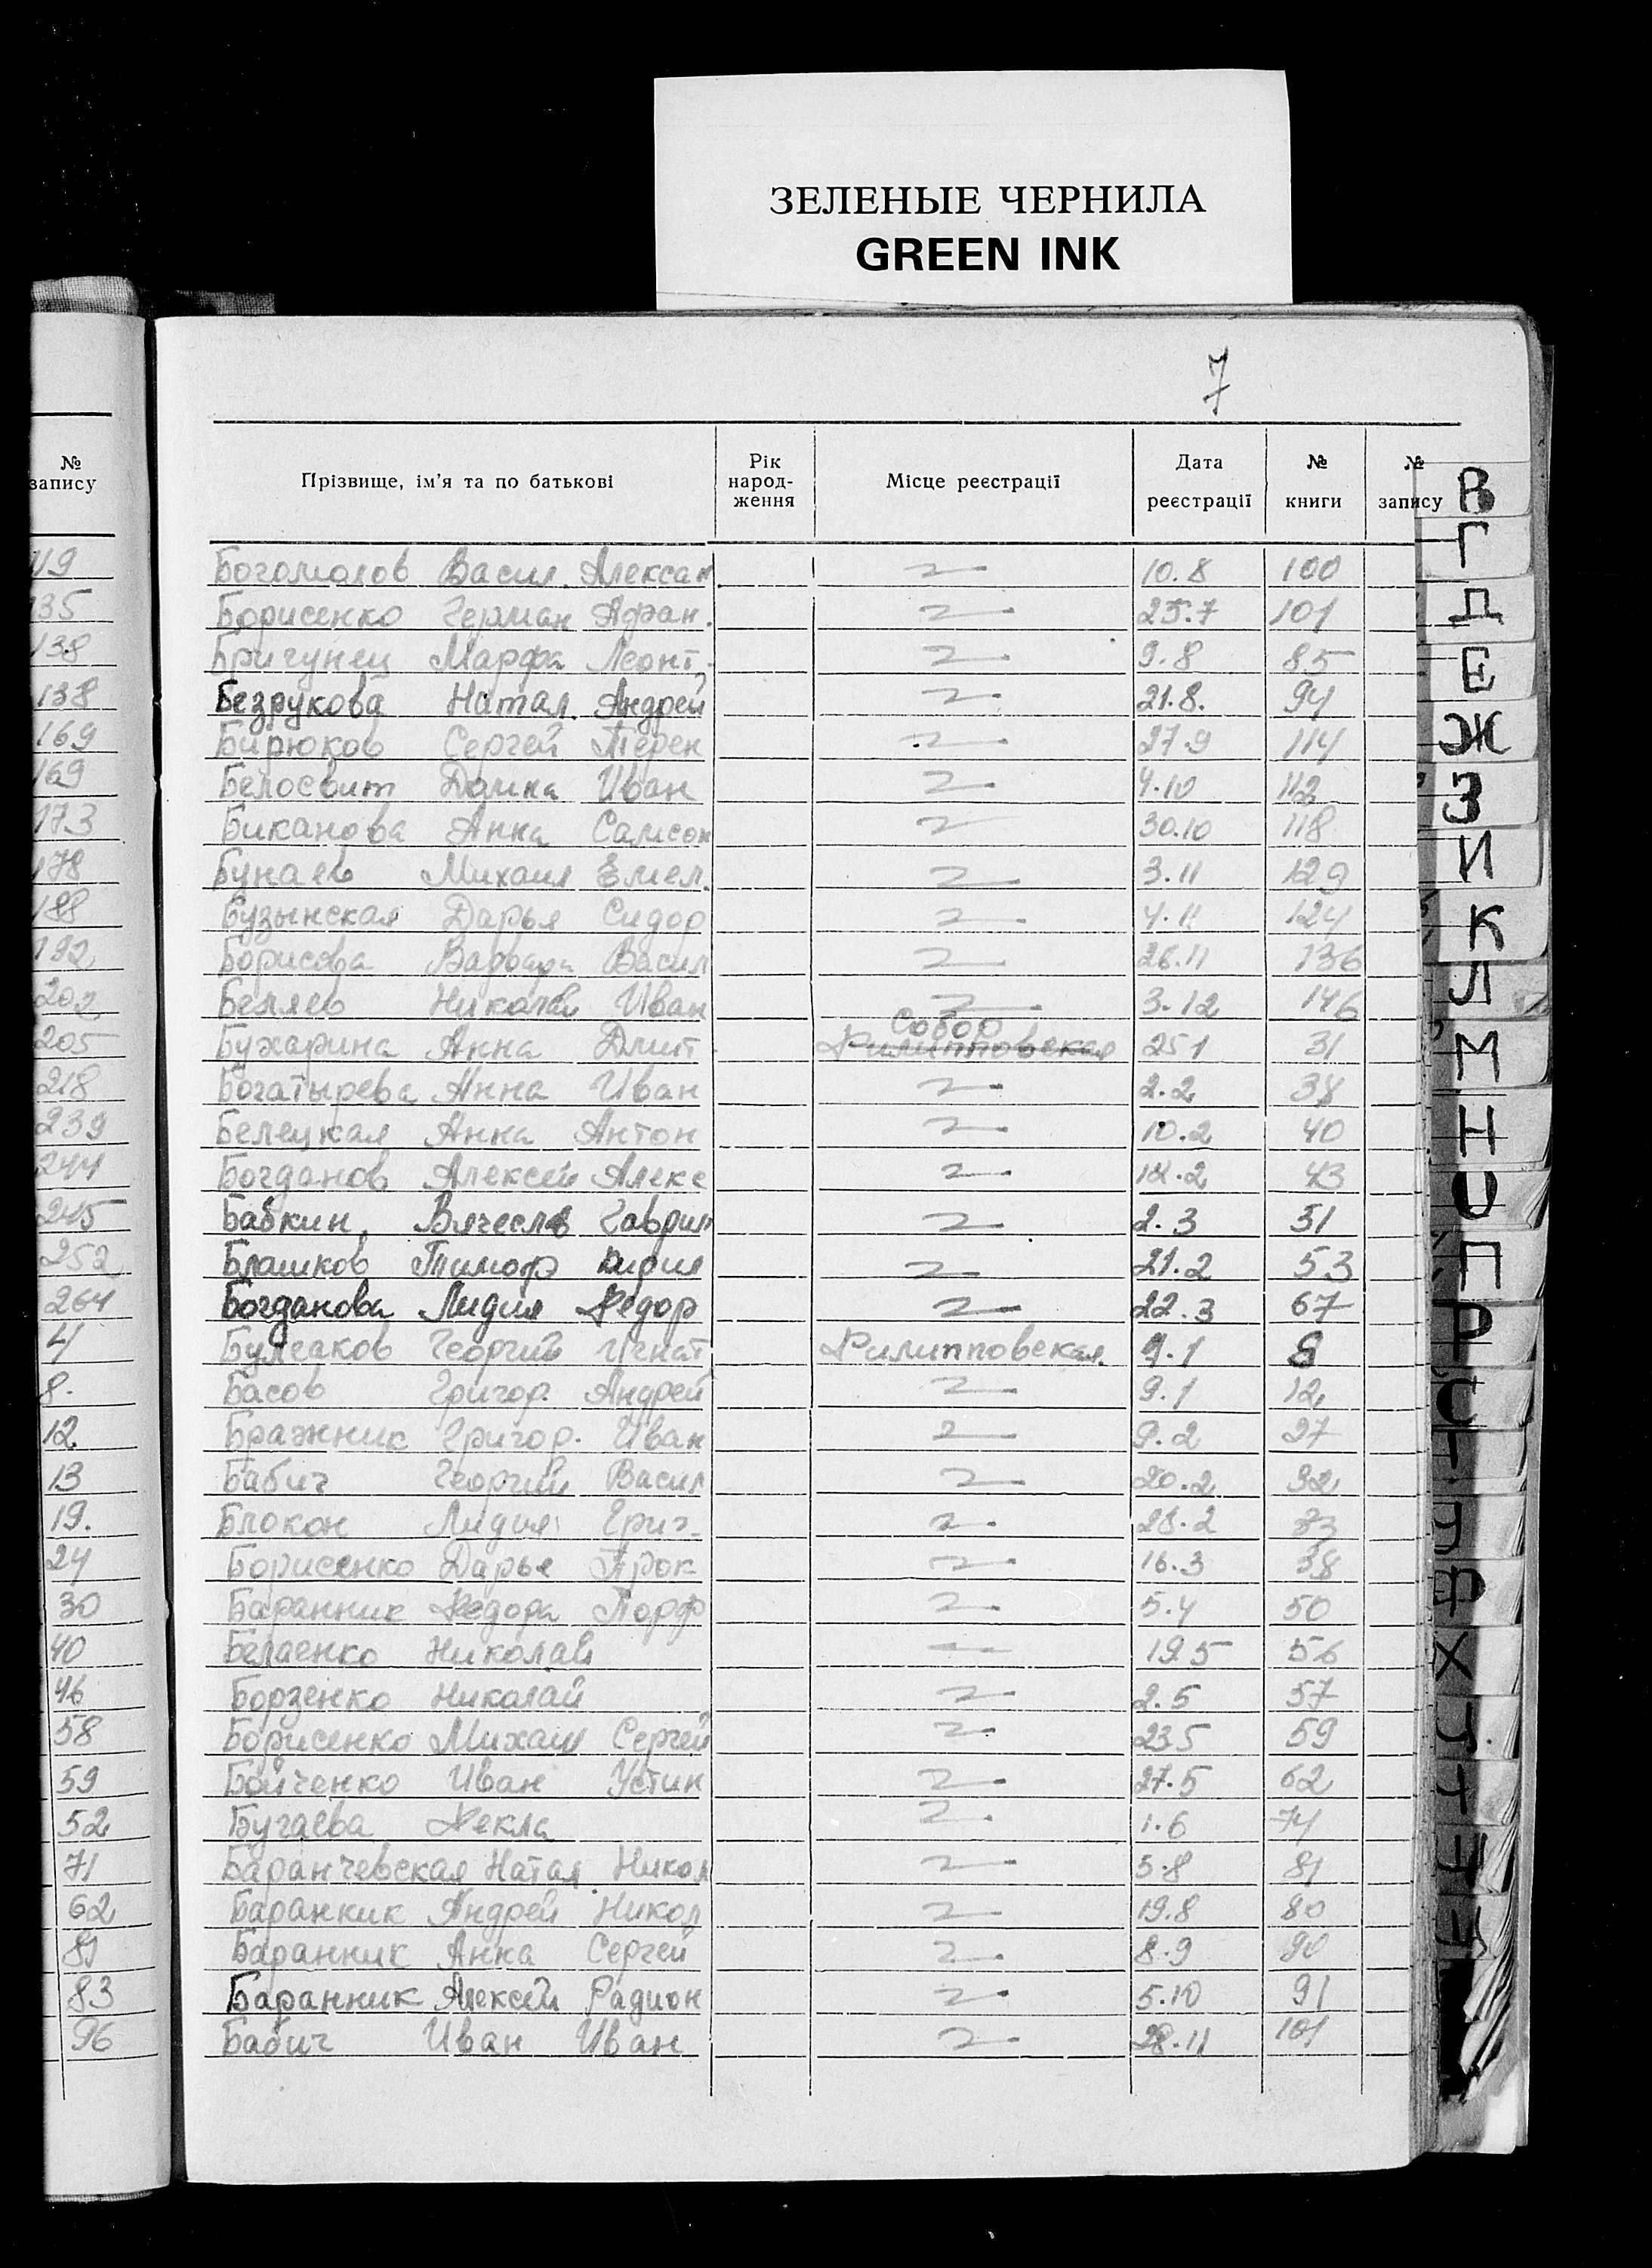 ЗЕЛЕНЫЕ ЧЕРНИЛА
GREEN INK
7
№ запису
Прізвище, ім'я та по батькові
Рік народ-ження
Місце реєстрації
Дата реєстрації
№ книги
№ запису
Богомолов Васил. Алексан 10.8 100
Борисенко Герман Афан. 25.7 101
Бригунец Марфа Леонт. 9.8 85
Безрукова Натал. Андрей 21.8. 94
Бирюков Сергей Терен 27.9 114
Белосвит Домна Иван 4.10 112
Биканова Анна Самсон 30.10 118
Бунаев Михаил Емел. 3.11 129
Бузынская Дарья Сидор 4.11 124
Борисова Варвара Васил 26.11 136
Беляев Николай Иван 3.12 146
Собор
Бухарина Анна Дмит. Филипповская 25 1 31
Богатырева Анна Иван 2.2 38
Белецкая Анна Антон 10.2 40
Богданов Алексей Алекс 18.2 43
Бабкин Вячеслв Гаврил 2.3 51
Блашков Тимоф Кирил 21.2 53
Богданова Лидия Федор 22.3 67
Булгаков Георгий Игнат Филипповская. 9.1 8
Басов Григор. Андрей 9.1 12
Бражник Григор. Иван 9.2 27
Бабич Георгий Васил 20.2 32
Блокон Лидия Григ. 28.2 33
Борисенко Дарья Прок 16.3 38
Баранник Федора Порф 5.4 50
Белаенко Николай 19 5 56
Борзенко Николай 2.5 57
Борисенко Михаил Сергей 23 5 59
Бойченко Иван Устин 27.5 62
Бугаева Фекла 1.6 74
Баранчевская Натал. Никол 5.8 81
Баранник Андрей Никол 19.8 80
Баранник Анна Сергей 8.9 90
Баранник Алексей Радион 5.10 91
Бабич Иван Иван 28.11 101
119
135
138
138
169
169
173
178
188
192
202
205
218
239
244
245
252
264
4
8.
12
13
19.
24
30
40
46
58
59
52
71
62
81
83
96
В
Г
Д
Е
Ж
З
И
К
Л
М
Н
О
П
Р
С
Ф
Х